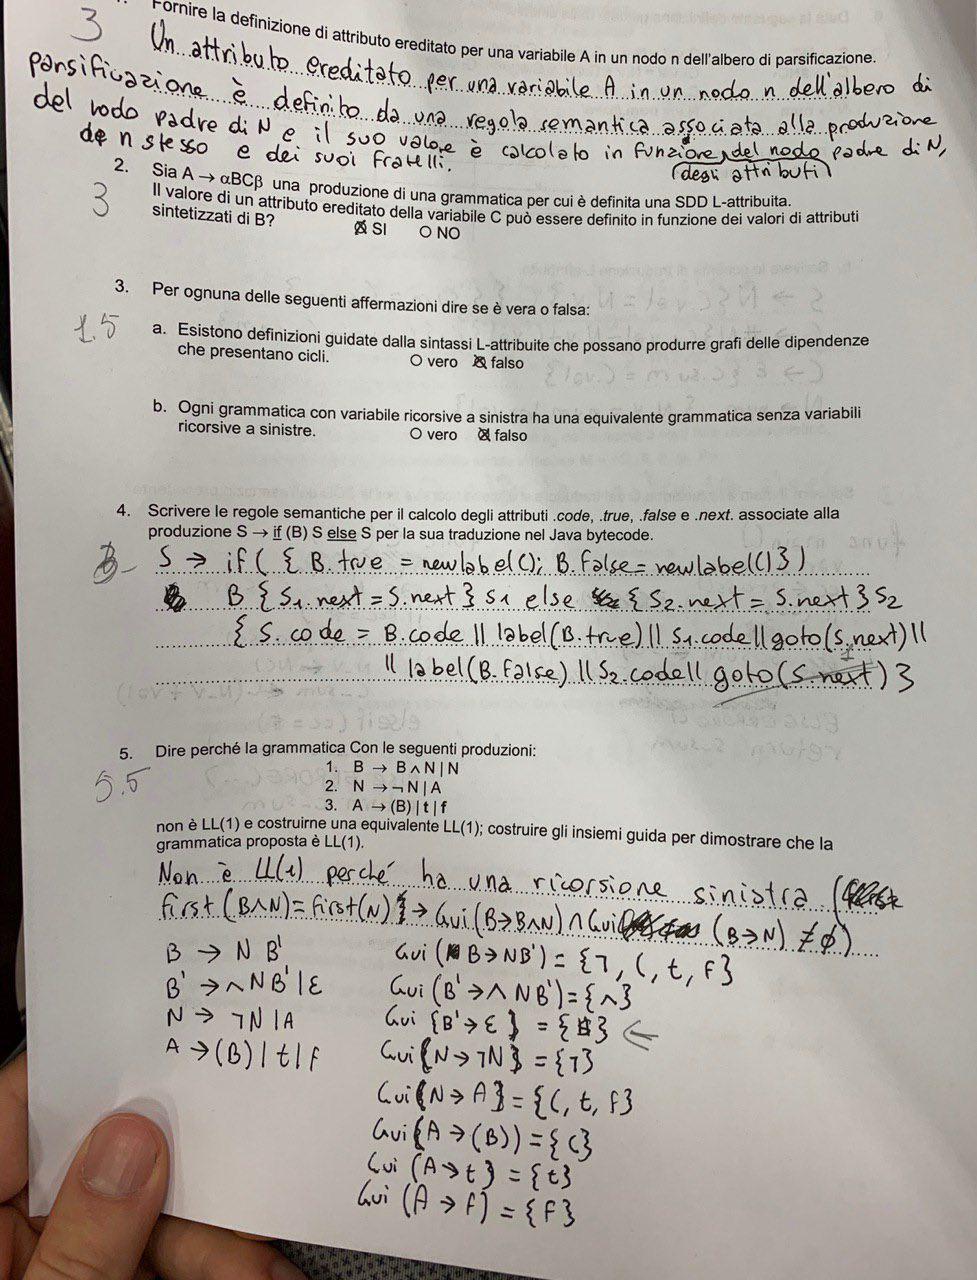 3
Fornire la definizione di attributo ereditato per una variabile A in un nodo n dell'albero di parsificazione.
Un attributo ereditato per una variabile A in un nodo n dell'albero di
parsificazione è definito da una regola semantica associata alla produzione
del nodo padre di N e il suo valore è calcolato in funzione del nodo padre di N,
de n stesso e dei suoi fratelli.
(degli attributi)
2. Sia A → αBCβ una produzione di una grammatica per cui è definita una SDD L-attribuita.
3
Il valore di un attributo ereditato della variabile C può essere definito in funzione dei valori di attributi
sintetizzati di B?
SI
O NO
3. Per ognuna delle seguenti affermazioni dire se è vera o falsa:
1.5
a. Esistono definizioni guidate dalla sintassi L-attribuite che possano produrre grafi delle dipendenze
che presentano cicli.
O vero
falso
b. Ogni grammatica con variabile ricorsive a sinistra ha una equivalente grammatica senza variabili
ricorsive a sinistre.
O vero
falso
4. Scrivere le regole semantiche per il calcolo degli attributi .code, .true, .false e .next. associate alla
produzione S → if (B) S else S per la sua traduzione nel Java bytecode.
S → if ( { B.true = newlabel(); B.false = newlabel() } )
B { S1.next = S.next } S1 else { S2.next = S.next } S2
{ S.code = B.code || label(B.true) || S1.code || goto(S.next) ||
|| label(B.false) || S2.code || goto(S.next) }
5. Dire perché la grammatica Con le seguenti produzioni:
5.5
1. B → B ∧ N | N
2. N → ¬ N | A
3. A → (B) | t | f
non è LL(1) e costruirne una equivalente LL(1); costruire gli insiemi guida per dimostrare che la
grammatica proposta è LL(1).
Non è LL(1) perché ha una ricorsione sinistra (
first (B∧N) = first(N) } → Gui (B→B∧N) ∩ Gui (B→N) ≠ ∅)
B → N B'
B' → ∧ N B' | ε
N → ¬N | A
A → (B) | t | f
Gui ( B→NB') = {¬, (, t, f}
Gui (B'→∧ NB') = {∧}
Gui {B'→ε } = {$} ←
Gui {N→¬N} = {¬}
Gui {N→A} = {(, t, f}
Gui {A→(B)) = {(}
Gui (A→t } = {t}
Gui (A → f) = {f}